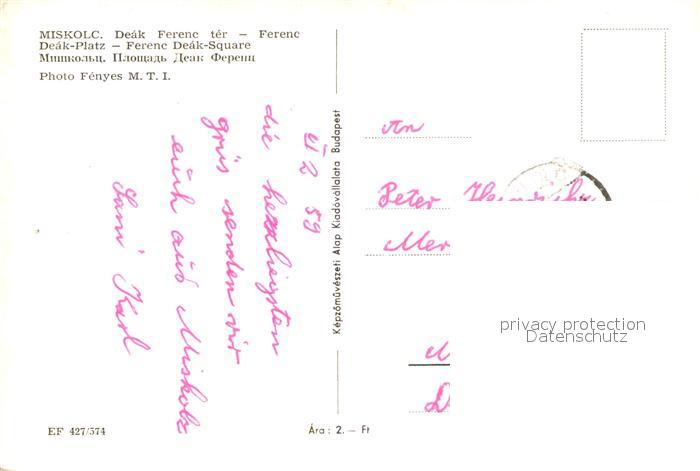 MISKOLC. Deák Ferenc tér – Ferenc
Deák-Platz – Ferenc Deák-Square
Мишкольц. Площадь Деак Ференц
Photo Fényes M. T. I.
2 59
die herzleigsten
grüs senden wir
euch aus Miskolz
Karl
Képzőművészeti Alap Kiadóvállalata Budapest
An
Peter
Mer
privacy protection
Datenschutz
EF 427/574
Ára: 2.– Ft